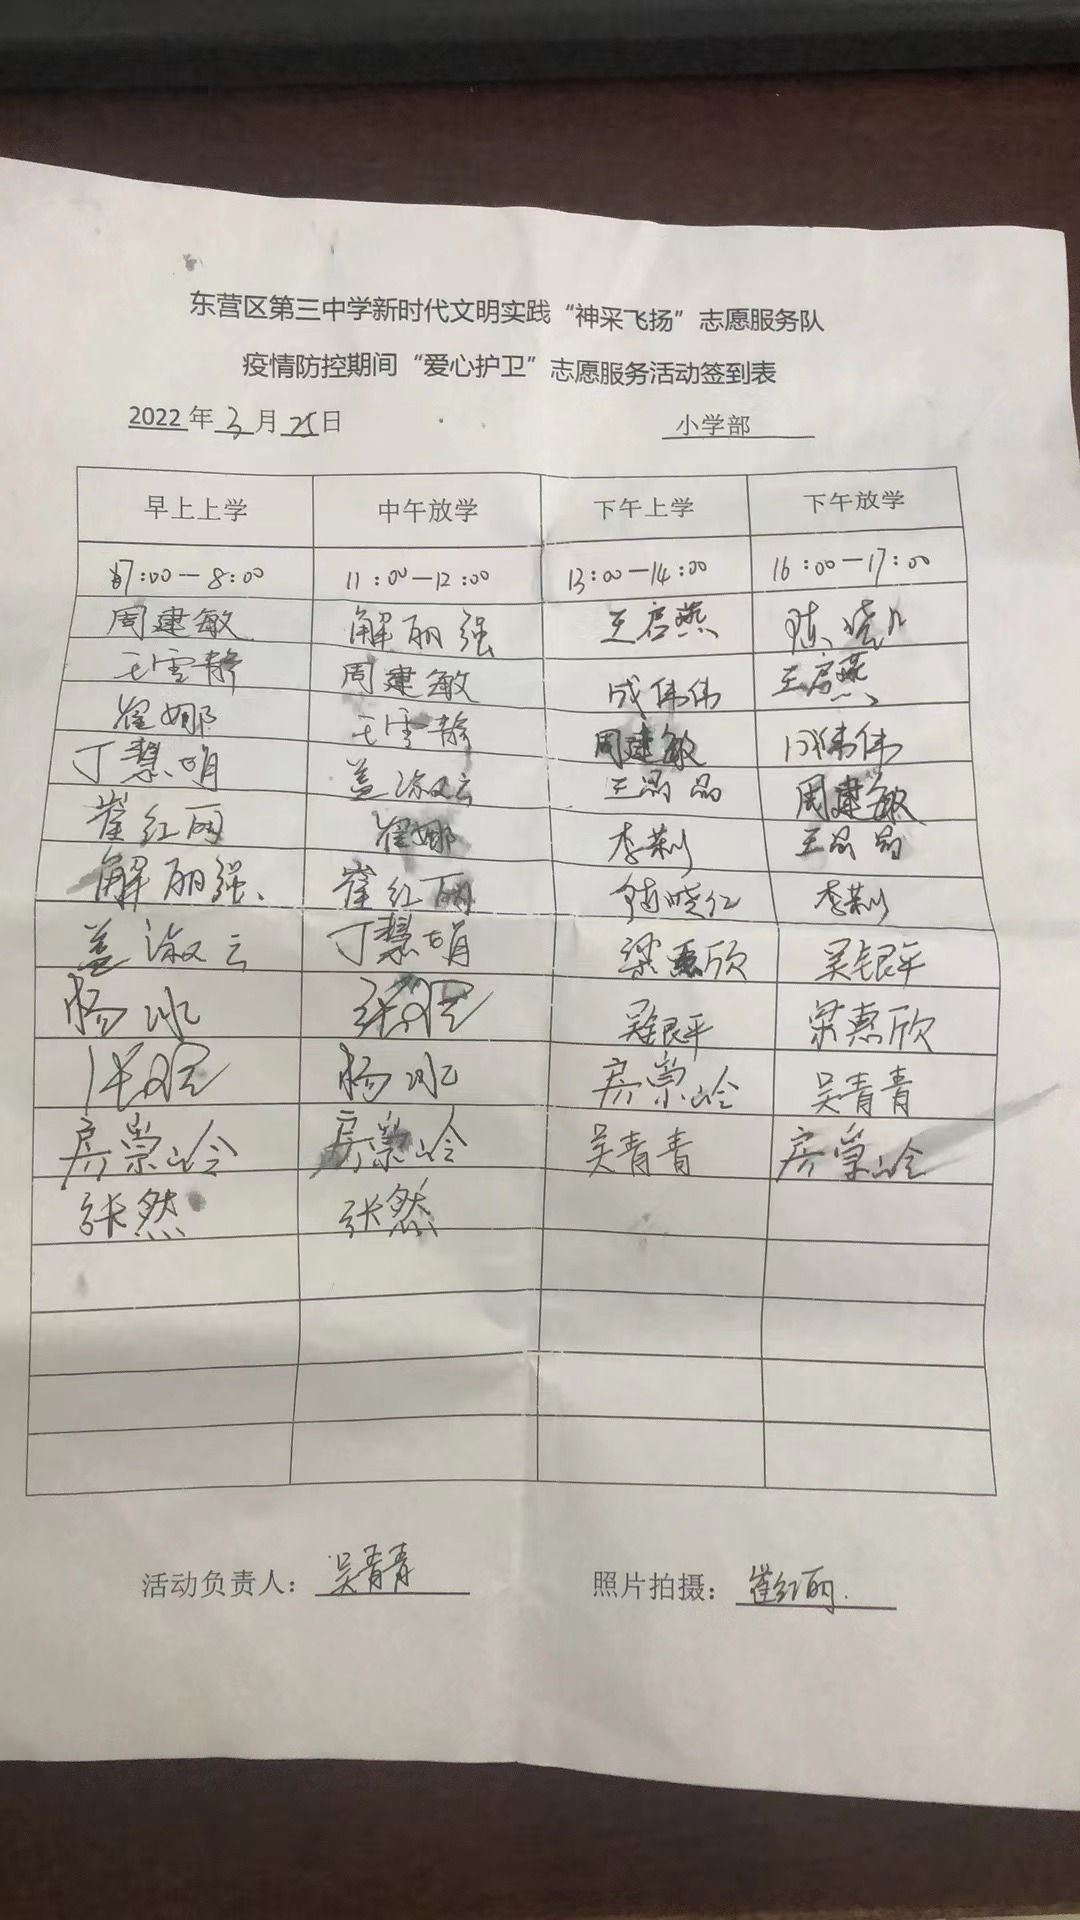 东营区第三中学新时代文明实践“神采飞扬”志愿服务队
疫情防控期间“爱心护卫”志愿服务活动签到表
2022 年 3 月 25 日 小学部
早上上学 中午放学 下午上学 下午放学
7:00—8:00 11:00—12:00 13:00—14:00 16:00—17:00
周建敏 解丽强 王启燕 陈
王雪静 周建敏 成伟伟 王启燕
翟娜 王雪静 周建敏 成伟伟
丁慧娟 盖淑云 王晶 周建敏
崔红丽 翟娜 李荆 王晶
解丽强 崔红丽 晓红 李荆
盖淑云 丁慧娟 梁惠欣 吴银平
杨冰 张 吴银平 梁惠欣
张 杨冰 房崇岭 吴青青
房崇岭 房崇岭 吴青青 房崇岭
张然 张然
活动负责人：吴青青 照片拍摄：崔红丽.